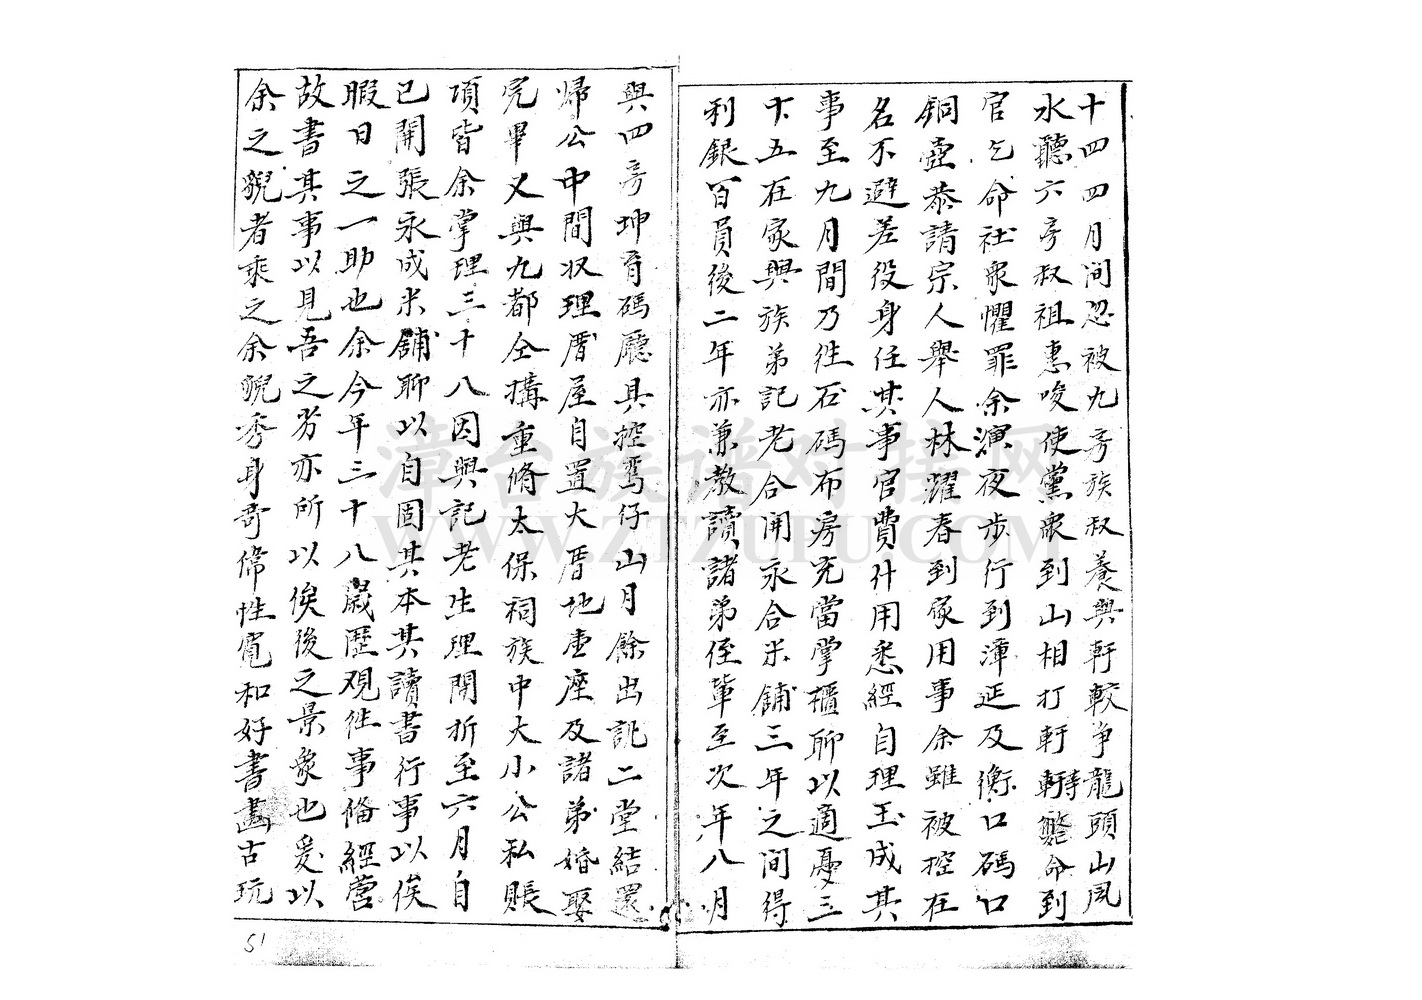 十四四月间忽被九房族叔養興軒較争龍頭山风
水聽六房叔祖惠唆使黨衆到山相打軒轎斃命到
官乞命社衆懼罪余演夜步行到潭延及衡口碼口
铜壺恭請宗人舉人林躍春到家用事余雖被控在
名不避差役身任其事官費什用悉經自理玉成其
事至九月間乃徃石碼布房充當掌櫃聊以適憂三
十五在家興族弟記老合開永合米舖三年之间得
利銀百員後二年亦兼教讀諸弟侄軰至次年八月
與四房坤育碼廳具控鸾仔山月餘出訛二堂結還
歸公中間収理厝屋自置大厝地壹座及諸弟婚娶
完畢又與九都仝搆重脩太保祠族中大小公私賬
項皆余掌理三十八因與記老生理開折至六月自
已開張永成米舖聊以自固其本其讀書行事以俟
暇日之一助也余今年三十八歲歷观徃事俻經营
故書其事以見吾之劳亦所以俟後之景衆也爰以
余之貌者乘之余貌秀身奇偉性寬和好書畫古玩
51
漳台族谱对接网
WWW.ZTZUPU.COM